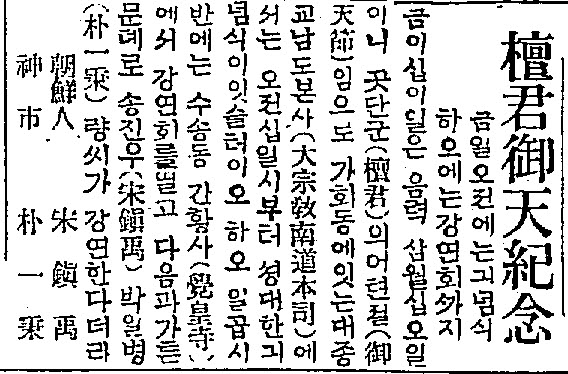 檀君御天紀念
금일오전에는긔념식
하오에는강연회ᄭᅡ지
금이십이일은 음력 삼월십오일
이니 곳단군(檀君)의어텬졀(御
天節)임으로 가회동에잇는대종
교남도본사(大宗敎南道本司)에
셔는 오젼십일시부터 셩대한긔
념식이잇슬터이오 하오 일곱시
반에는 수송동 간황사(覺皇寺)
에셔 강연회를열고 다음과가튼
문뎨로 송진우(宋鎭禹) 박일병
(朴一秉) 량씨가 강연한다더라
朝鮮人 宋鎭禹
神市 朴一秉